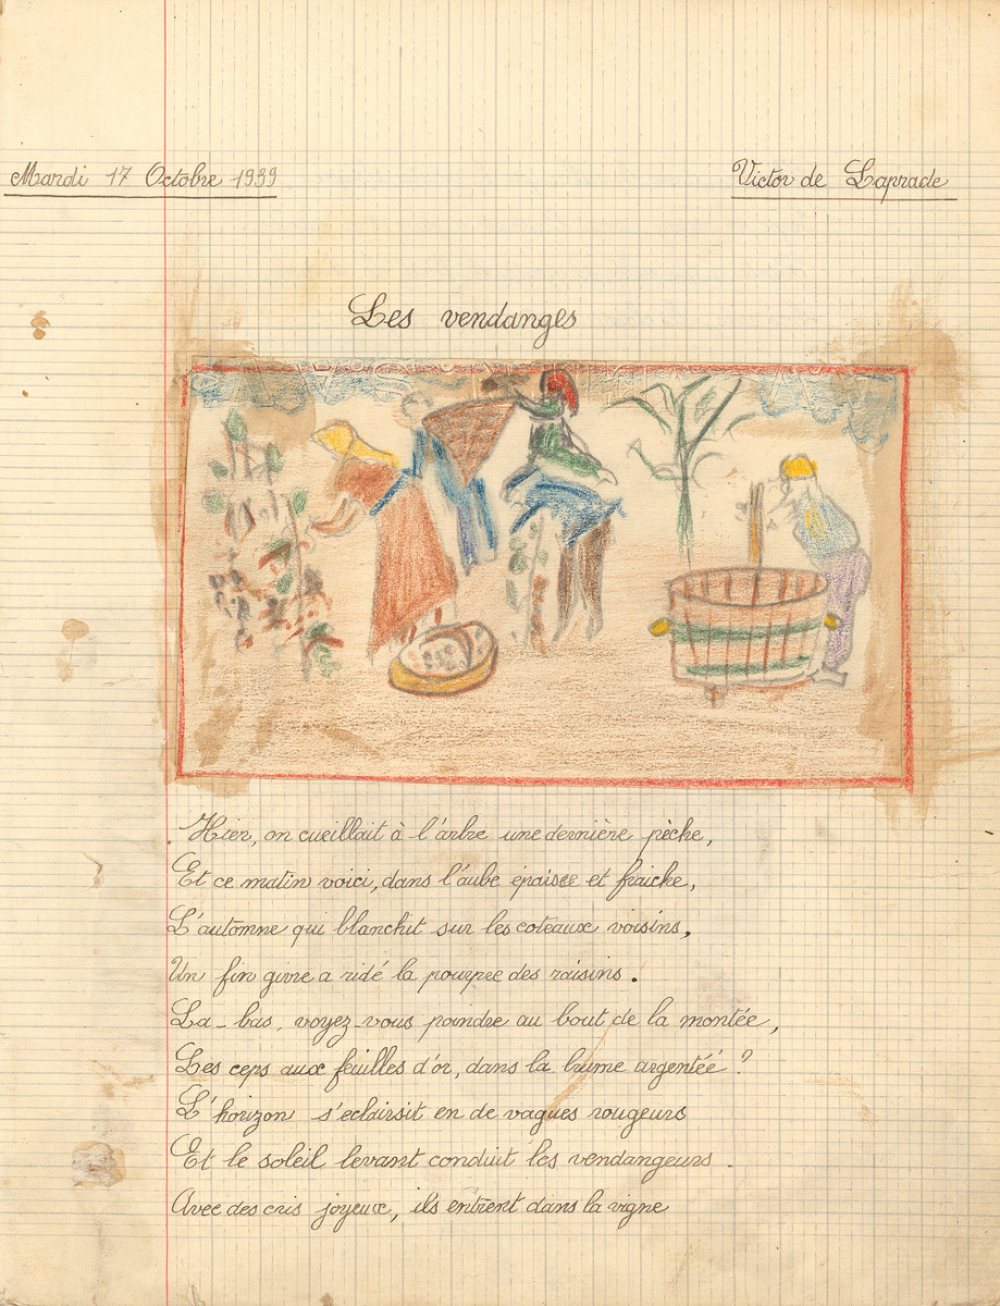 Mardi 17 Octobre 1939
Victor de Laprade
Les vendanges
Hier, on cueillait à l'arbre une dernière pèche,
Et ce matin voici, dans l'aube épaisse et fraiche,
L'automne qui blanchit sur les coteaux voisins,
Un fin givre a ridé la pourpre des raisins.
La-bas, voyez-vous poindre au bout de la montée,
Les ceps aux feuilles d'or, dans la brume argentéé ?
L'horizon s'eclairsit en de vagues rougeurs
Et le soleil levant conduit les vendangeurs.
Avec des cris joyeux, ils entrent dans la vigne